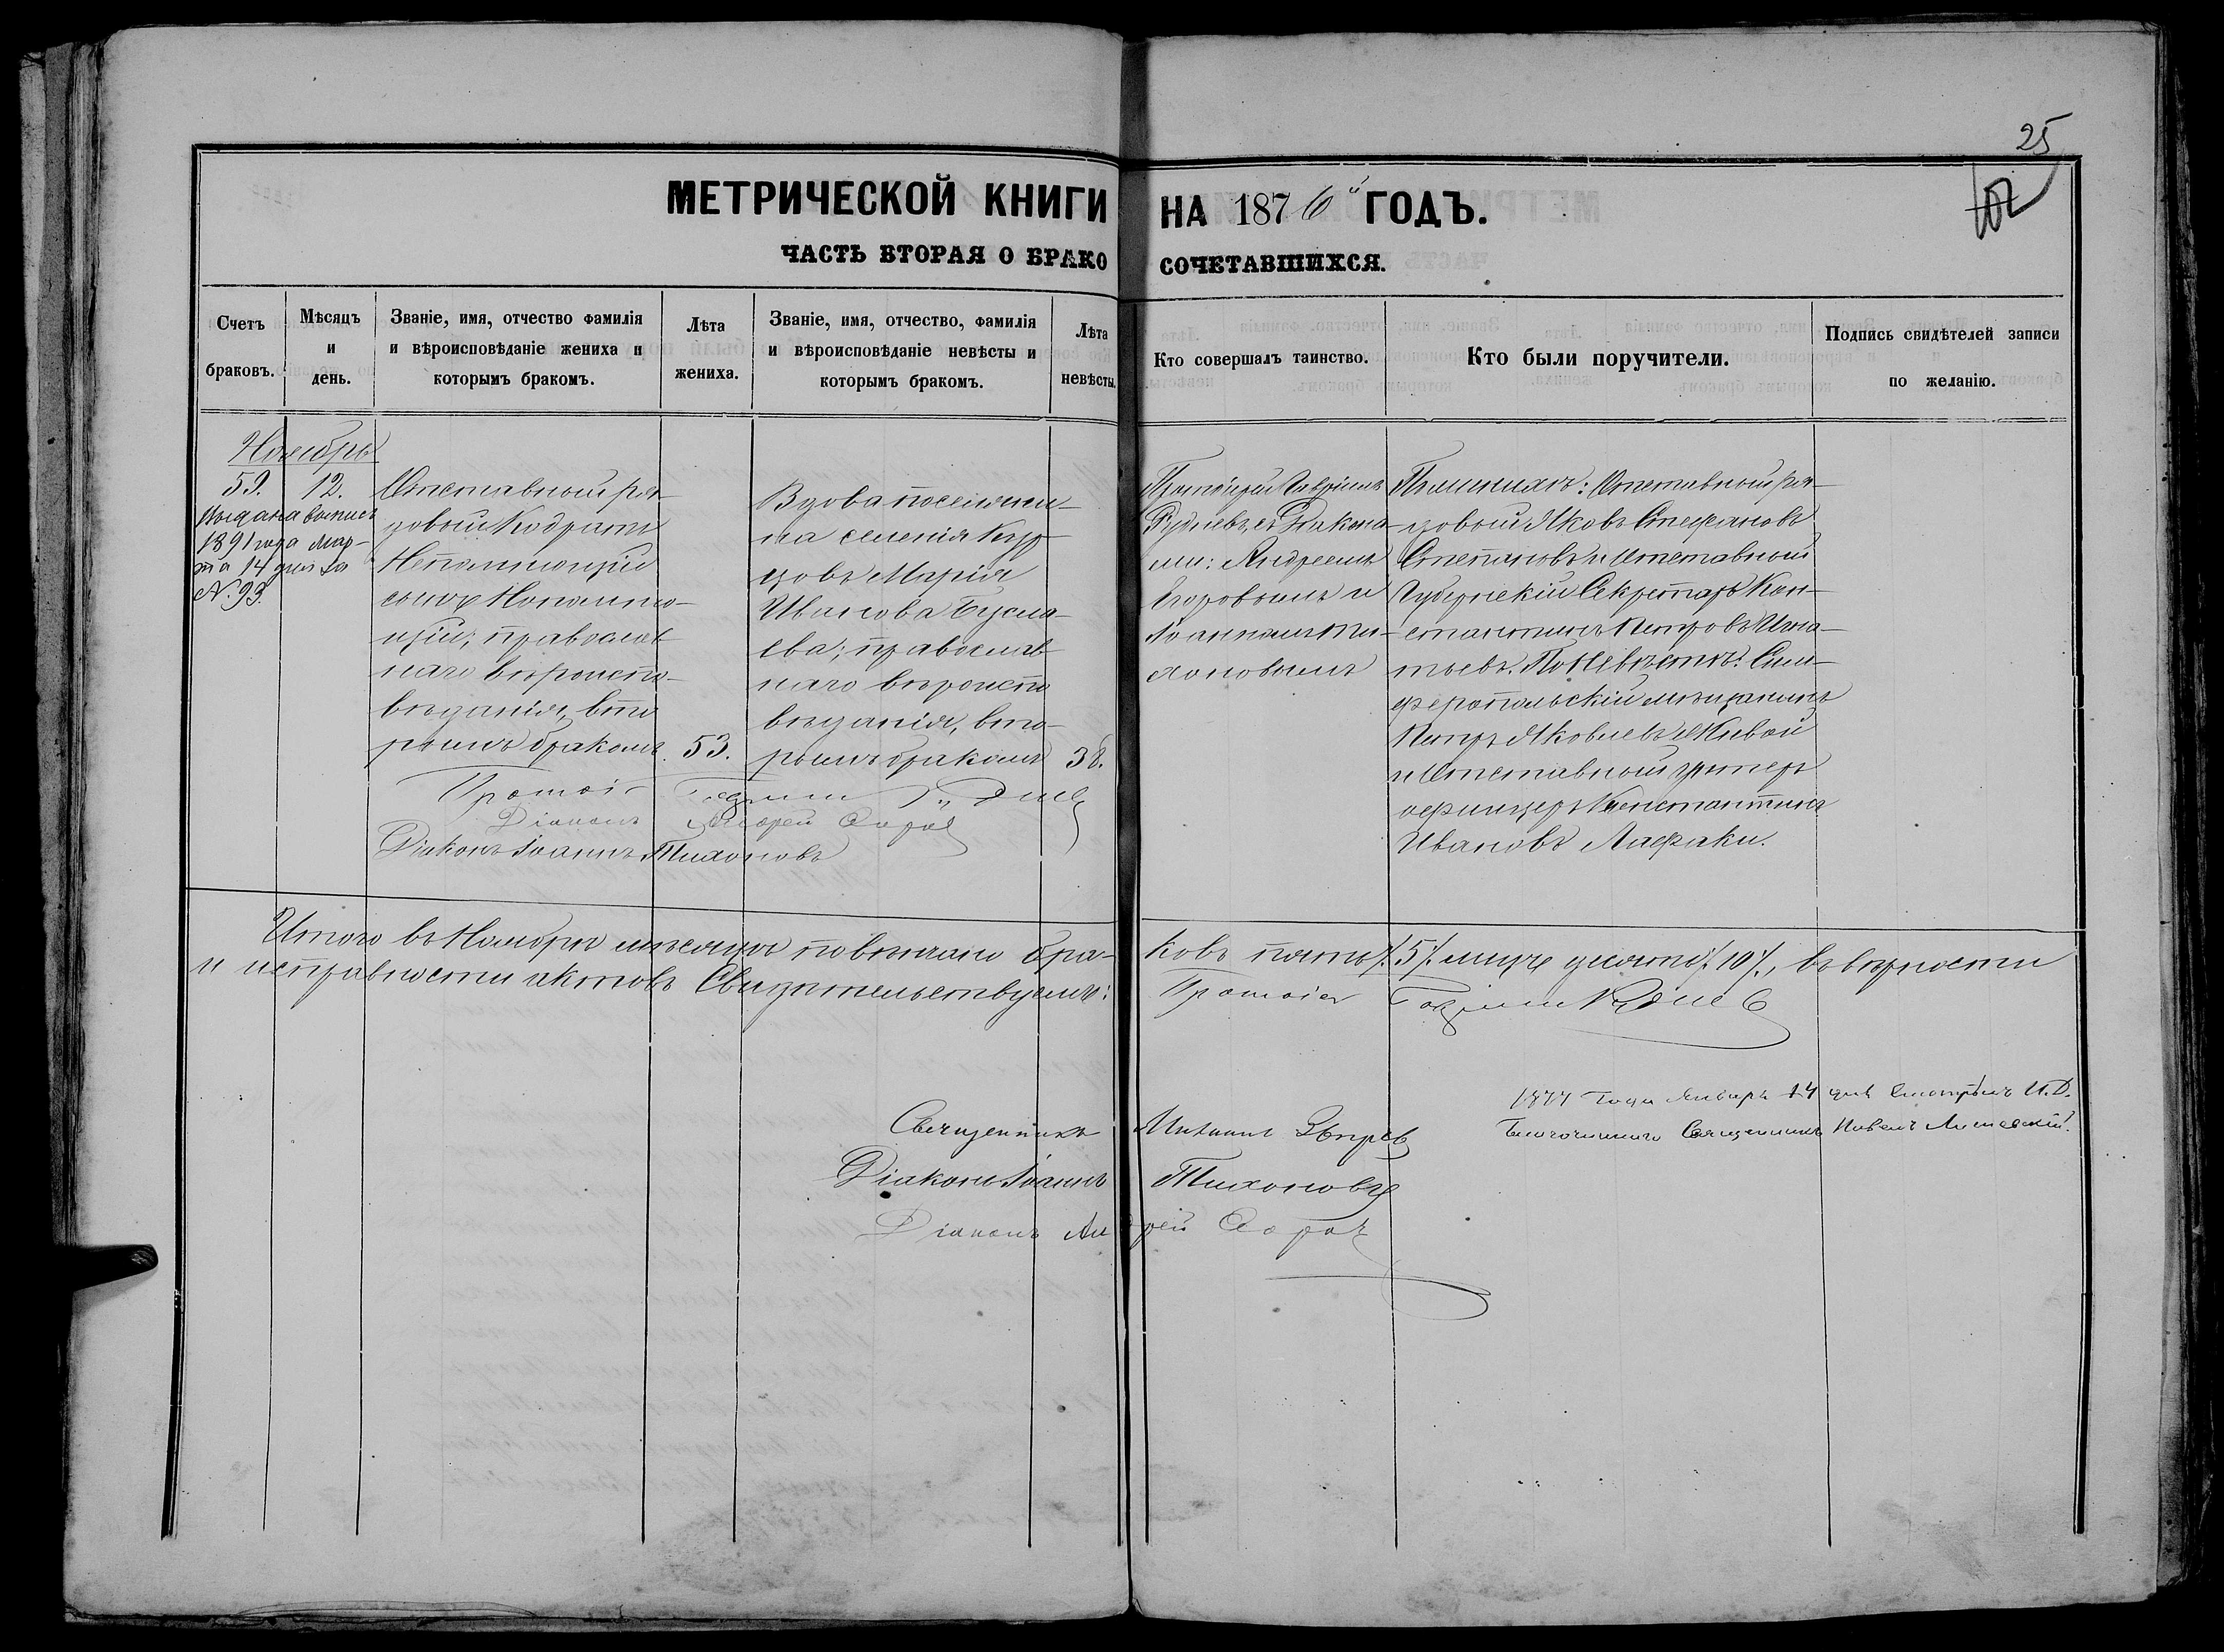 25
102
МЕТРИЧЕСКОЙ КНИГИ НА 1876й ГОДЪ.
ЧАСТЬ ВТОРАЯ О БРАКОСОЧЕТАВШИХСЯ.
Счетъ
браковъ.
Мѣсяцъ
и
день.
Званіе, имя, отчество фамилія
и вѣроисповѣданіе жениха и
которымъ бракомъ.
Лѣта
жениха.
Званіе, имя, отчество, фамилія
и вѣроисповѣданіе невѣсты и
которымъ бракомъ.
Лѣта
невѣсты.
Кто совершалъ таинство.
Кто были поручители.
Подпись свидѣтелей записи
по желанію.
Ноябрь
59.
Выдана выпись
1891 года Мар-
та 14 дня за
№. 93.
12.
Отставной ря-
довый Кодратъ
сынъ
православ
наго вѣроиспо-
вѣданія, вто
рымъ бракомъ.
53.
Вдова поселяни-
на селенія Кур-
цовъ Марія
Иванова Бусла-
ева; православ
наго вѣроиспо
вѣданія, вто-
рымъ бракомъ
38.
Протоіерей Гавріилъ
Рудневъ, съ Діакона-
ми: Андреемъ
Егоровымъ и
Іоанномъ Ти-
хоновымъ
По женихѣ: Отставной ря-
довый Яковъ Стефановъ
Степановъ и Отставной
Губернскій Секретарь Кон-
стантинъ Петровъ Игна-
тьевъ. По Невѣстѣ: Сим-
феропольскій мѣщанинъ
Петръ Яковлевъ
и Отставной унтеръ
офицеръ Константинъ
Ивановъ Лафаки.
Протоіе Гавріилъ Рудневъ
Діаконъ Андрей
Діаконъ Іоаннъ Тихоновъ
Итого въ Ноябрѣ мѣсяцѣ повѣнчано бра-ковъ пять ⁒5⁒ лицъ десять ⁒10⁒, въ вѣрности
и исправности актовъ Свидѣтельствуемъ: Протоіер Гавріилъ Рудневъ
Священникъ Михаилъ
Діаконъ Іоаннъ Тихоновъ
Діаконъ Андрей
1877 Года Января 14 дня смотрѣлъ И.Д.
Благочиннаго Священникъ Павелъ